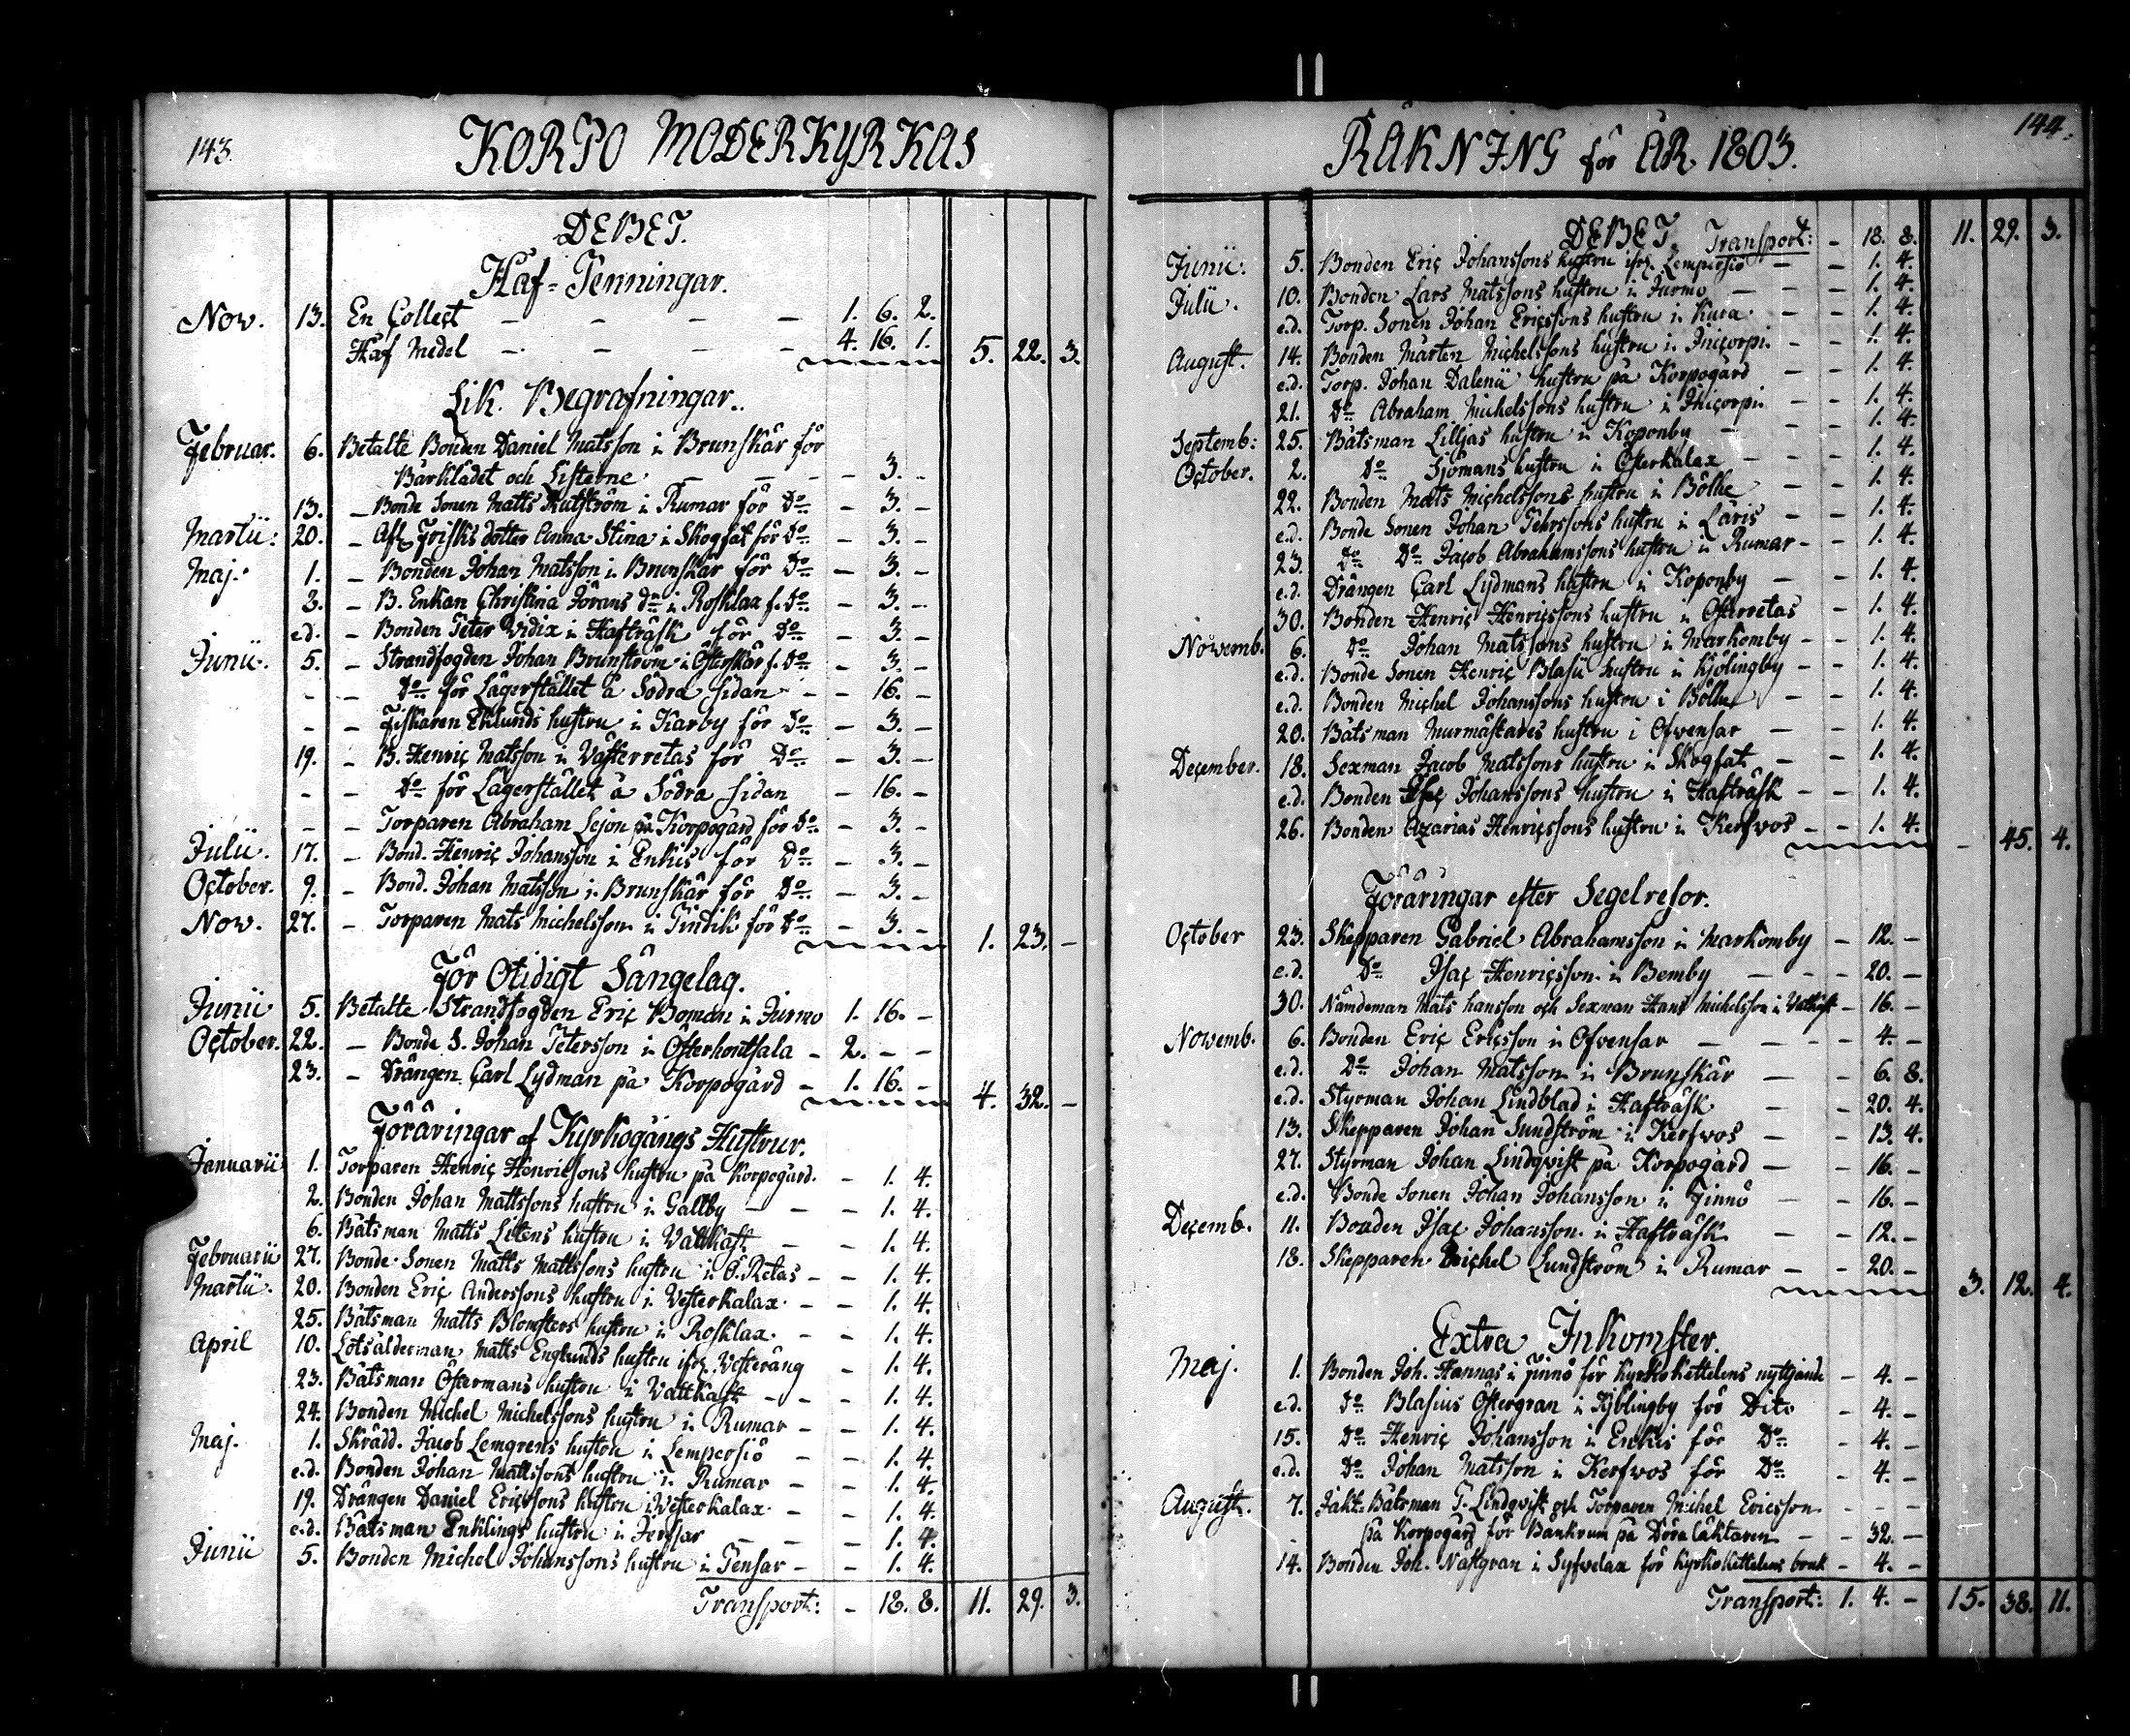 143.
KORPO MODERKYRKAS
DEBET.
Håf-Penningar.
Nov. 13. En Collect — — — — 1. 6. 2.
Håf Medel — — — — 4. 16. 1. 5. 22. 3.
Lik. Begrafningar.
Februar. 6. Betalte Bonden Daniel Matsson i Brunskär för
Bårklädet och Listerne — — — 3. —
13. — Bonde Sonen Matts Rutström i Rumar för Do — 3. —
Martii: 20. — Afl. Frisks dotter Anna Stina i Skogfat för Do — 3. —
Maj. 1. — Bonden Johan Matsson i Brunskär för Do — 3. —
3. — B. Enkan Christina Jörans dr i Rosklax f. Do — 3. —
e.d. — Bonden Peter Vidix i Hafträsk för Do — 3. —
Junii. 5. — Strandfogden Johan Brunström i Österskär f. Do — 3. —
— — Do för Lägerstället å Södra sidan — — 16. —
— — Fiskaren Eklunds hustru i Karby för Do — 3. —
19. — B. Henric Matsson i Västerretas för Do — 3. —
— — Do för Lägerstället å Södra sidan — 16. —
— — Torparen Abraham Lejon på Korpogård för Do — 3. —
Julii. 17. — Bond. Henric Johansson i Enkis för Do — 3. —
October. 9. — Bond. Johan Matsson i Brunskär för Do — 3. —
Nov. 27. — Torparen Mats Michelsson i Findik för Do — 3. — 1. 23. —
För Otidigt Sängelag.
Junii 5. Betalte Strandfogden Eric Boman i Jurmo 1. 16. —
October. 22. — Bonde S. Johan Petersson i Österhontsala — 2. — —
23. — Drängen Carl Lydman på Korpogård — 1. 16. — 4. 32. —
Föräringar af Kyrkogångs Hustrur.
Januarii 1. Torparen Henric Henricsons hustru på Korpogård. — 1. 4.
2. Bonden Johan Mattssons hustru i Gallby — — — 1. 4.
6. Båtsman Matts Litens hustru i Vattkast — — 1. 4.
Februarii 27. Bonde Sonen Matts Mattssons hustru i Ö. Retas — — 1. 4.
Martii. 20. Bonden Eric Anderssons hustru i Vesterkalax. — — 1. 4.
25. Båtsman Matts Blomsters hustru i Rosklax. — — 1. 4.
April 10. Lotsålderman Matts Englunds hustru ifr. Vesteräng — 1. 4.
23. Båtsman Östermans hustru i Vattkast — — — 1. 4.
24. Bonden Michel Michelssons hustru i Rumar — — 1. 4.
Maj. 1. Skrädd. Jacob Lemgrens hustru i Lempersiö — — 1. 4.
e.d. Bonden Johan Mattssons hustru i Rumar — — 1. 4.
19. Drängen Daniel Ericssons hustru i Vesterkalax. — — 1. 4.
e.d. Båtsman Enklings hustru i Jersar — — — 1. 4.
Junii 5. Bonden Michel Johanssons hustru i Pensar — — 1. 4.
Transport: — 18. 8. 11. 29. 3.
144.
RÄKNING för ÅR 1803.
DEBET Transport: — 18. 8. 11. 29. 3.
Junii: 5. Bonden Eric Johanssons hustru ifr. Lempersiö — — 1. 4.
Julii. 10. Bonden Lars Matssons hustru i Jurmo — — — 1. 4.
e.d. Torp. Sonen Johan Ericssons hustru i Kura. — — 1. 4.
August. 14. Bonden Mårten Michelssons hustru i Jnicorpi. — — 1. 4.
e.d. Torp. Johan Dalenii hustru på Korpogård — — 1. 4.
21. Do Abraham Michelssons hustru i Jnicorpi — — 1. 4.
Septemb: 25. Båtsman Lilljas hustru i Koponby — — 1. 4.
October. 2. Do Sjömans hustru i Österkalax — — — 1. 4.
22. Bonden Mats Michelssons hustru i Bölhe — — 1. 4.
e.d. Bonde Sonen Johan Pehrssons hustru i Läris — — 1. 4.
23. Do Do Jacob Abrahamssons hustru i Rumar — — 1. 4.
e.d. Drängen Carl Lydmans hustru i Koponby — — 1. 4.
30. Bonden Henric Henricssons hustru i Österretas — 1. 4.
Novemb. 6. Do Johan Matssons hustru i Markomby — — 1. 4.
e.d. Bonde Sonen Henric Blasii hustru i Kjölingby — — 1. 4.
e.d. Bonden Michel Johanssons hustru i Bölhe — — 1. 4.
20. Båtsman Murmästares hustru i Ofvensar — — 1. 4.
December. 18. Sexman Jacob Matssons hustru i Skogfat — — 1. 4.
e.d. Bonden Isac Johanssons hustru i Hafträsk — — 1. 4.
26. Bonden Azarias Henricssons hustru i Kerfvos — — 1. 4. — 45. 4.
Föräringar efter Segelresor.
October 23. Skepparen Gabriel Abrahamsson i Markomby — 12. —
e.d. Do Isac Henricsson i Bemby — — — 20. —
30. Nämdeman Mats Hansson och Sexman Hans Michelsson i Vattkast — 16. —
Novemb. 6. Bonden Eric Ericsson i Ofvensar — — — — 4. —
e.d. Do Johan Matsson i Brunskär — — 6. 8.
e.d. Styrman Johan Lindblad i Hafträsk — — 20. 4.
13. Skepparen Johan Sundström i Kerfvos — — 13. 4.
27. Styrman Johan Lindqvist på Korpogård — — 16. —
e.d. Bonde Sonen Johan Johansson i Finnö — — 16. —
Decemb. 11. Bonden Isac Johansson i Hafträsk — — 12. —
18. Skepparen Michel Lundström i Rumar — — 20. — 3. 12. 4.
Extra Inkomster.
Maj. 1. Bonden Joh. Hannas i Finnö för Kyrkokettelens nyttjande — 4. —
e.d. Do Blasius Östergran i Kjölingby för Dito — 4. —
15. Do Henric Johansson i Enkis för Do — 4. —
e.d. Do Johan Matsson i Kerfvos för Do — 4. —
August. 7. Jakt Båtsman P. Lindqvist och Torparen Michel Ericsson. — — —
på Korpogård för Bänkrum på Döra Läktaren — — 32. —
14. Bonden Joh. Nästgran i Syfvelax för Kyrkokettelens bruk — 4. —
Transport: 1. 4. — 15. 38. 11.